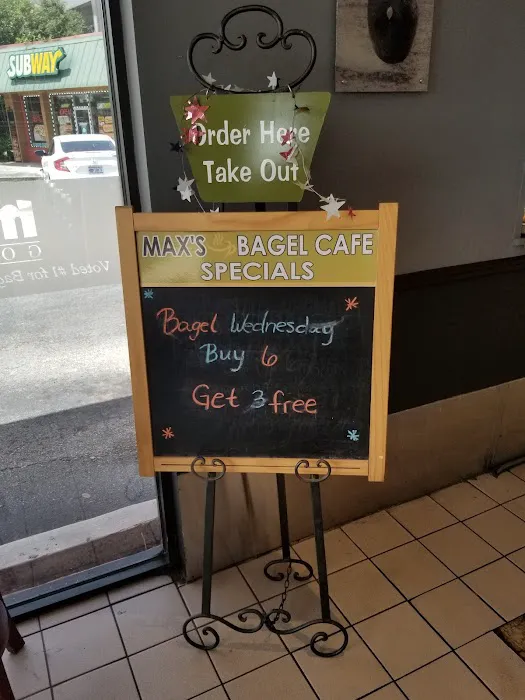 SUBWAY
Order Here
Take Out
MAX'S BAGEL CAFE
SPECIALS
Bagel Wednesday
Buy 6
Get 3 free
Voted #1 for